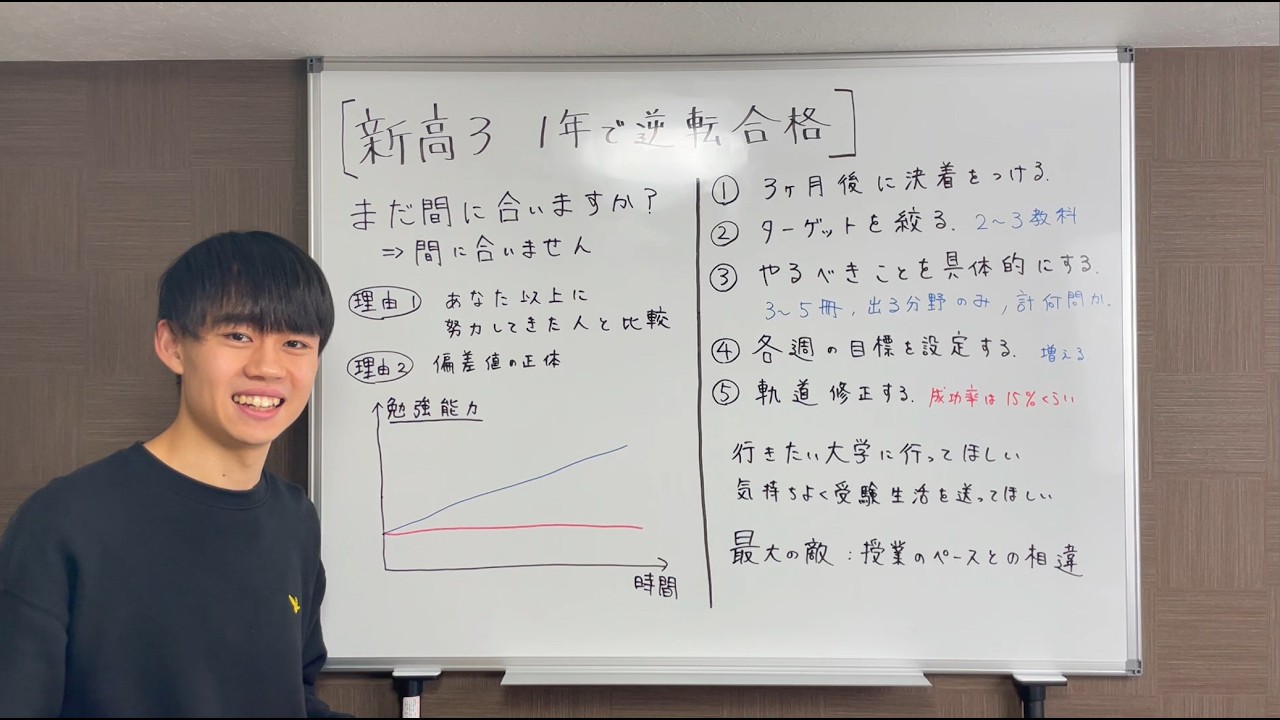 [新高3 1年で逆転合格]
まだ間に合いますか?
⇒間に合いません
理由1 あなた以上に
努力してきた人と比較
理由2 偏差値の正体
勉強能力
時間
① 3ヶ月後に決着をつける.
② ターゲットを絞る. 2〜3教科
③ やるべきことを具体的にする.
3〜5冊, 出る分野のみ, 計何問か.
④ 各週の目標を設定する. 増える
⑤ 軌道修正する. 成功率は15%くらい
行きたい大学に行ってほしい
気持ちよく受験生活を送ってほしい
最大の敵:授業のペースとの相違